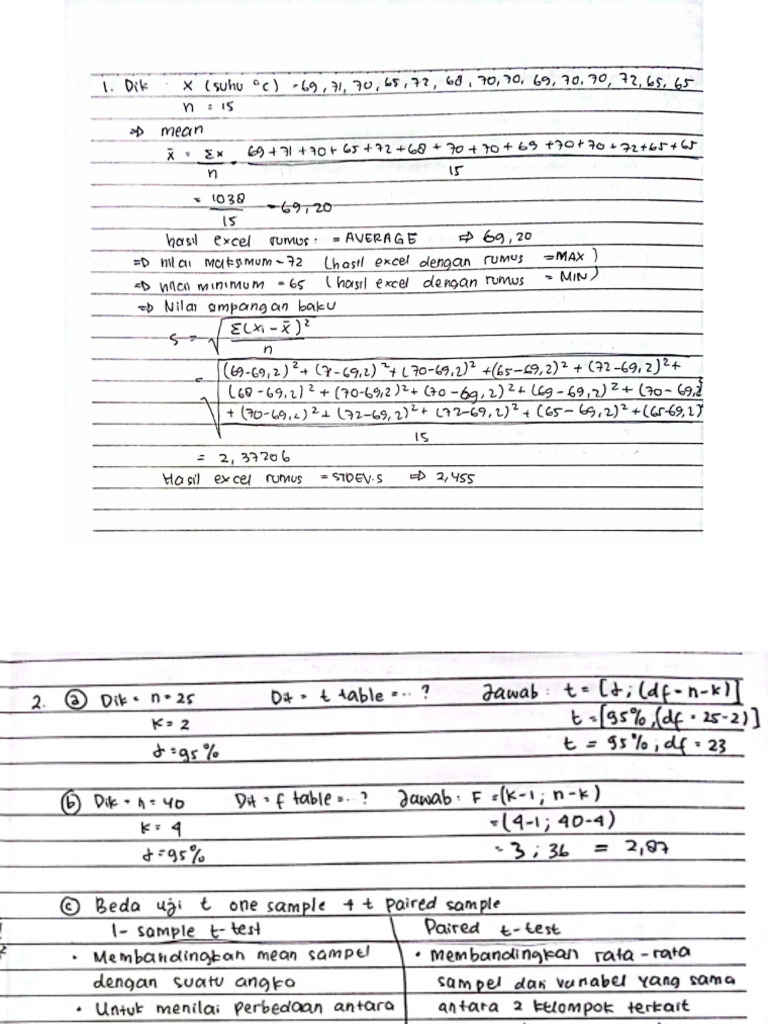 1. Dik : X (suhu °C) = 69, 71, 70, 65, 72, 68, 70, 70, 69, 70, 70, 72, 65, 65
n = 15
⇒ mean
x̄ = Σx = 69 + 71 + 70 + 65 + 72 + 68 + 70 + 70 + 69 + 70 + 70 + 72 + 65 + 65
n 15
= 1038 = 69,20
15
hasil excel rumus : = AVERAGE ⇒ 69,20
⇒ nilai maksimum = 72 (hasil excel dengan rumus = MAX)
⇒ nilai minimum = 65 (hasil excel dengan rumus = MIN)
⇒ Nilai simpangan baku
S = √ Σ(xi - x̄)²
n
= √ (69-69,2)² + (7-69,2)² + (70-69,2)² + (65-69,2)² + (72-69,2)² +
(68-69,2)² + (70-69,2)² + (70-69,2)² + (69-69,2)² + (70-69,2)
+ (70-69,2)² + (72-69,2)² + (72-69,2)² + (65-69,2)² + (65-69,2)
15
= 2,37206
Hasil excel rumus = STDEV.S ⇒ 2,455
2. (a) Dik = n = 25 Dit = t table = ... ? Jawab : t = [α ; (df = n-k)]
k = 2 t = [95%, (df = 25-2)]
α = 95% t = 95% ; df = 23
(b) Dik = n = 40 Dit = f table = ... ? Jawab : F = (k-1 ; n-k)
k = 4 = (4-1 ; 40-4)
α = 95% = 3 ; 36 = 2,87
(c) Beda uji t one sample + t paired sample
1- sample t-test Paired t-test
• Membandingkan mean sampel • membandingkan rata-rata
dengan suatu angka sampel dari variabel yang sama
• Untuk menilai perbedaan antara antara 2 kelompok terkait